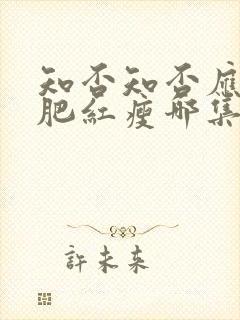 知否知否應
肥紅瘦哪集
許未来